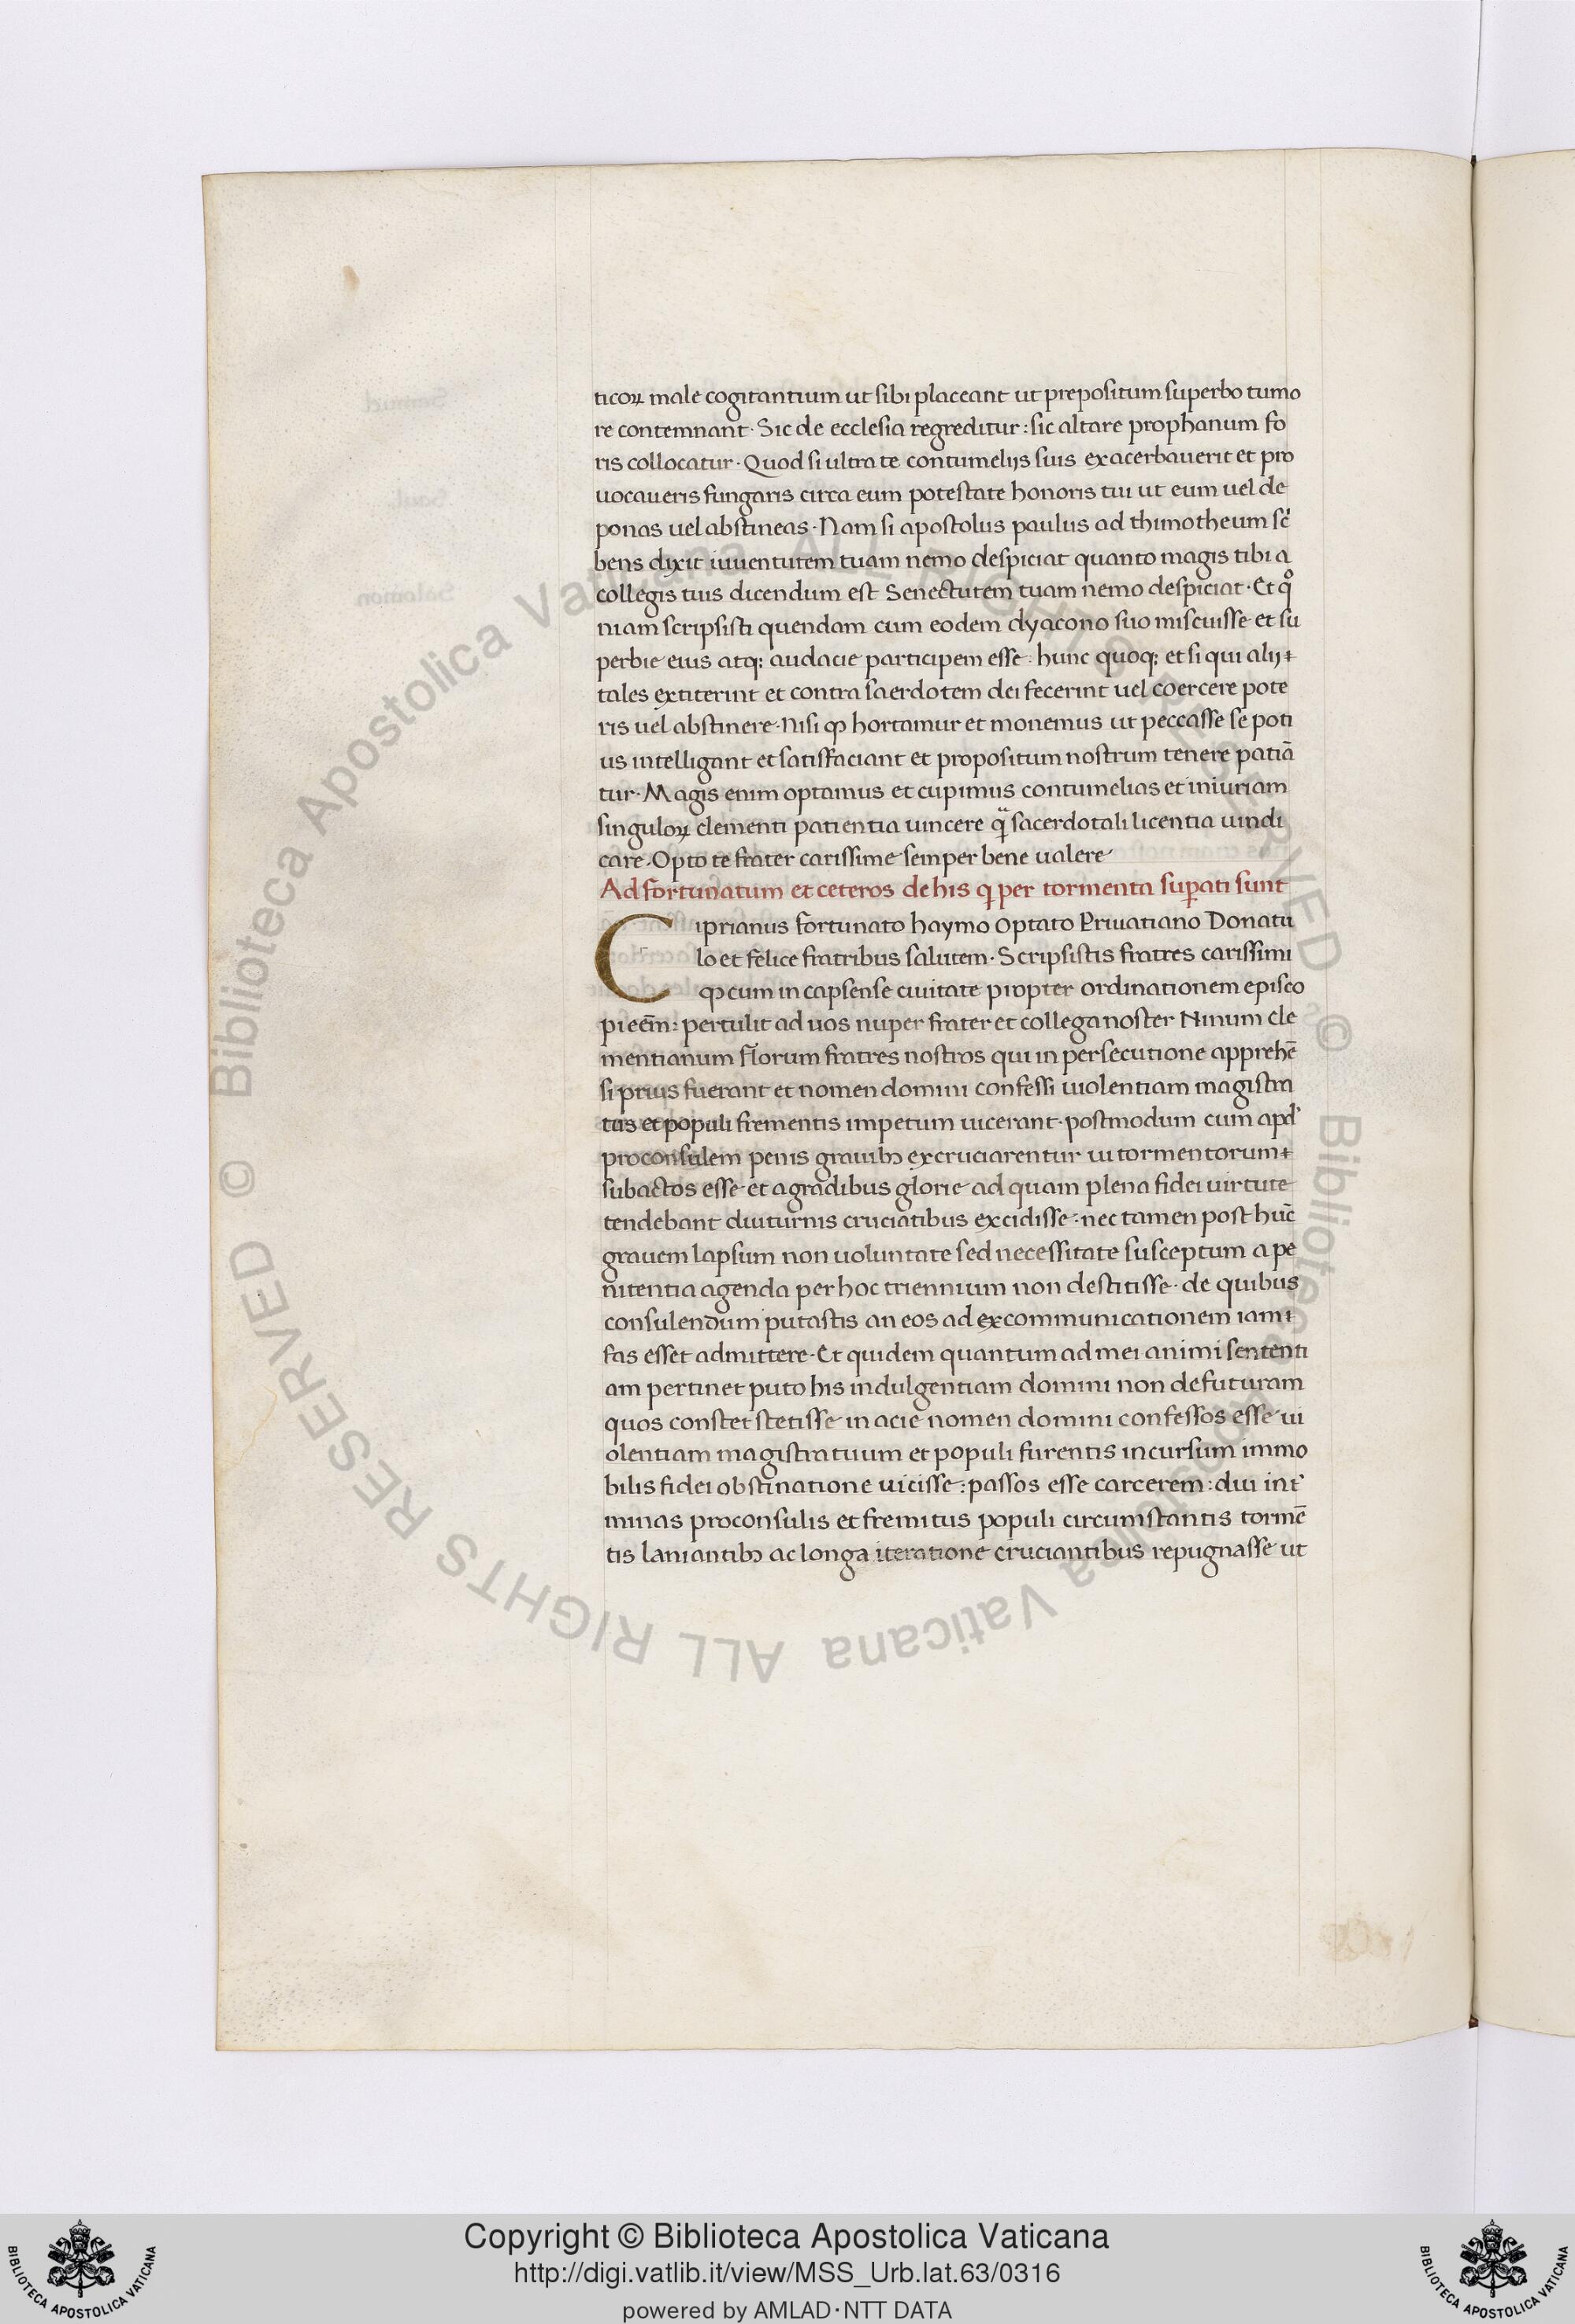 ticoꝝ male cogitantium ut sibi placeant ut prepositum superbo tumo
re contemnant · Sic de ecclesia regreditur : sic altare prophanum fo
ris collocatur · Quod si ultra te contumelijs suis exacerbauerit et pro
uocaueris fungaris circa eum potestate honoris tui ut eum uel de
ponas uel abstineas · Nam si apostolus paulus ad thimotheum sc̉
bens dixit iuuentutem tuam nemo despiciat quanto magis tibi a
collegis tuis dicendum est Senectutem tuam nemo despiciat · Et qͦ
niam scripsisti quendam cum eodem dyacono suo miscuisse et su
perbie eius atq; audacie participem esse · hunc quoq; et si qui alij
tales extiterint et contra saerdotem dei fecerint uel coercere pote
ris uel abstinere · Nisi ꝙ hortamur et monemus ut peccasse se poti
us intelligant et satisfaciant et propositum nostrum tenere patiā
tur · Magis enim optamus et cupimus contumelias et iniuriam
singuloꝝ clementi patientia uincere qᷓ sacerdotali licentia uindi
care · Opto te frater carissime semper bene ualere
Ad fortunatum et ceteros de his q per tormenta suꝑati sunt
Ciprianus fortunato haymo Optato Priuatiano Donatu
lo et felice fratribus salutem · Scripsistis fratres carissimi
ꝙ cum in capsense ciuitate propter ordinationem episco
pi eēm : pertulit ad uos nuper frater et collega noster Ninum cle
mentianum florum fratres nostros qui in persecutione apprehē
si prius fuerant et nomen domini confessi uiolentiam magistra
tus et populi frementis impetum uicerant · postmodum cum apd'
proconsulem penis grauibꝫ excruciarentur ui tormentorum
subactos esse et a gradibus glorie ad quam plena fidei uirtute
tendebant diuturnis cruciatibus excidisse · nec tamen post huc̄
grauem lapsum non uoluntate sed necessitate susceptum a pe
nitentia agenda per hoc triennium non destitisse · de quibus
consulendum putastis an eos ad excommunicationem iam
fas esset admittere · Et quidem quantum ad mei animi sententi
am pertinet puto his indulgentiam domini non defuturam
quos constet stetisse in acie nomen domini confessos esse ui
olentiam magistratuum et populi furentis incursum immo
bilis fidei obstinatione uicisse : passos esse carcerem : diu int'
minas proconsulis et fremitus populi circumstantis tormē
tis laniantibꝫ ac longa iteratione cruciantibus repugnasse ut
© Biblioteca Apostolica Vaticana ALL RIGHTS RESERVED © Biblioteca Apostolica Vaticana ALL RIGHTS RESERVED
BIBLIOTECA APOSTOLICA VATICANA
Copyright © Biblioteca Apostolica Vaticana
http://digi.vatlib.it/view/MSS_Urb.lat.63/0316
powered by AMLAD·NTT DATA
BIBLIOTECA APOSTOLICA VATICANA